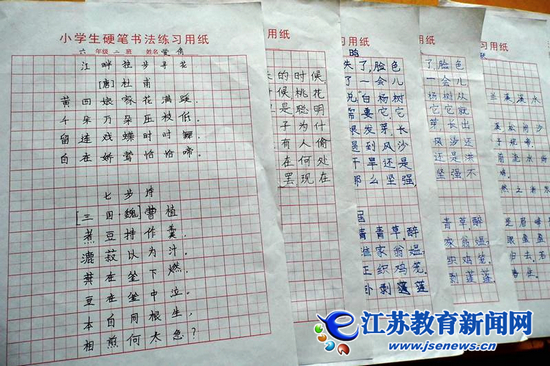 小学生硬笔书法练习用纸
六年级二班 姓名
江畔独步寻花
[唐]杜甫
黄四娘家花满蹊,
千朵万朵压枝低。
留连戏蝶时时舞,
自在娇莺恰恰啼。
七步诗
[三国·魏]曹植
煮豆持作羹,
漉菽以为汁。
萁在釜下燃,
豆在釜中泣。
本自同根生,
相煎何太急?
习用纸
去的时候
候桃花
是聪明
子为什
有人偷
在何处
罢现在
习用纸
失了,脸色
了一会儿
说白杨树
需要它
很发芽长
遇到风沙
干旱还是
那么坚强
青青草,醉
谁家翁媪
正织鸡笼
卧剥莲蓬
用纸
脸色
会儿
杨树从
它就
长出
风沙还
还是洪
坚强不
青草,醉
家翁媪
织鸡笼
剥莲蓬
用纸
江苏教育新闻网
www.jsenews.cn